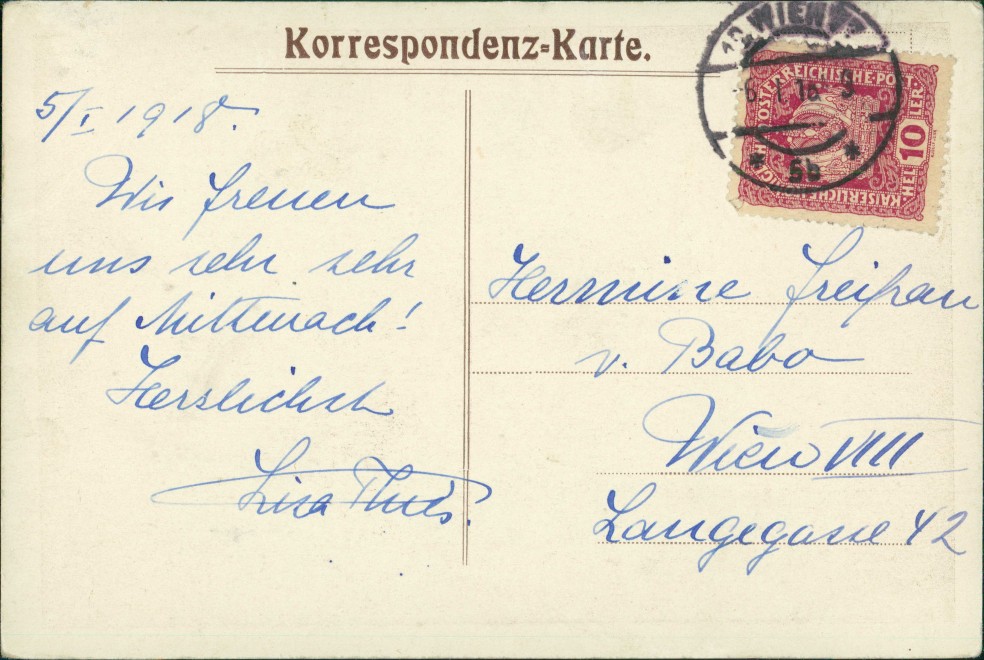 Korrespondenz-Karte.
5/I 1918.
Wir freuen
uns sehr sehr
auf Mittwoch!
Herzlichst
Lisa
WIEN
KAISERLICHE KÖNIGLICHE ÖSTERREICHISCHE POST
10 HELLER
5b
Hermine Freifrau
v. Babo
Wien VIII
Langegasse 42